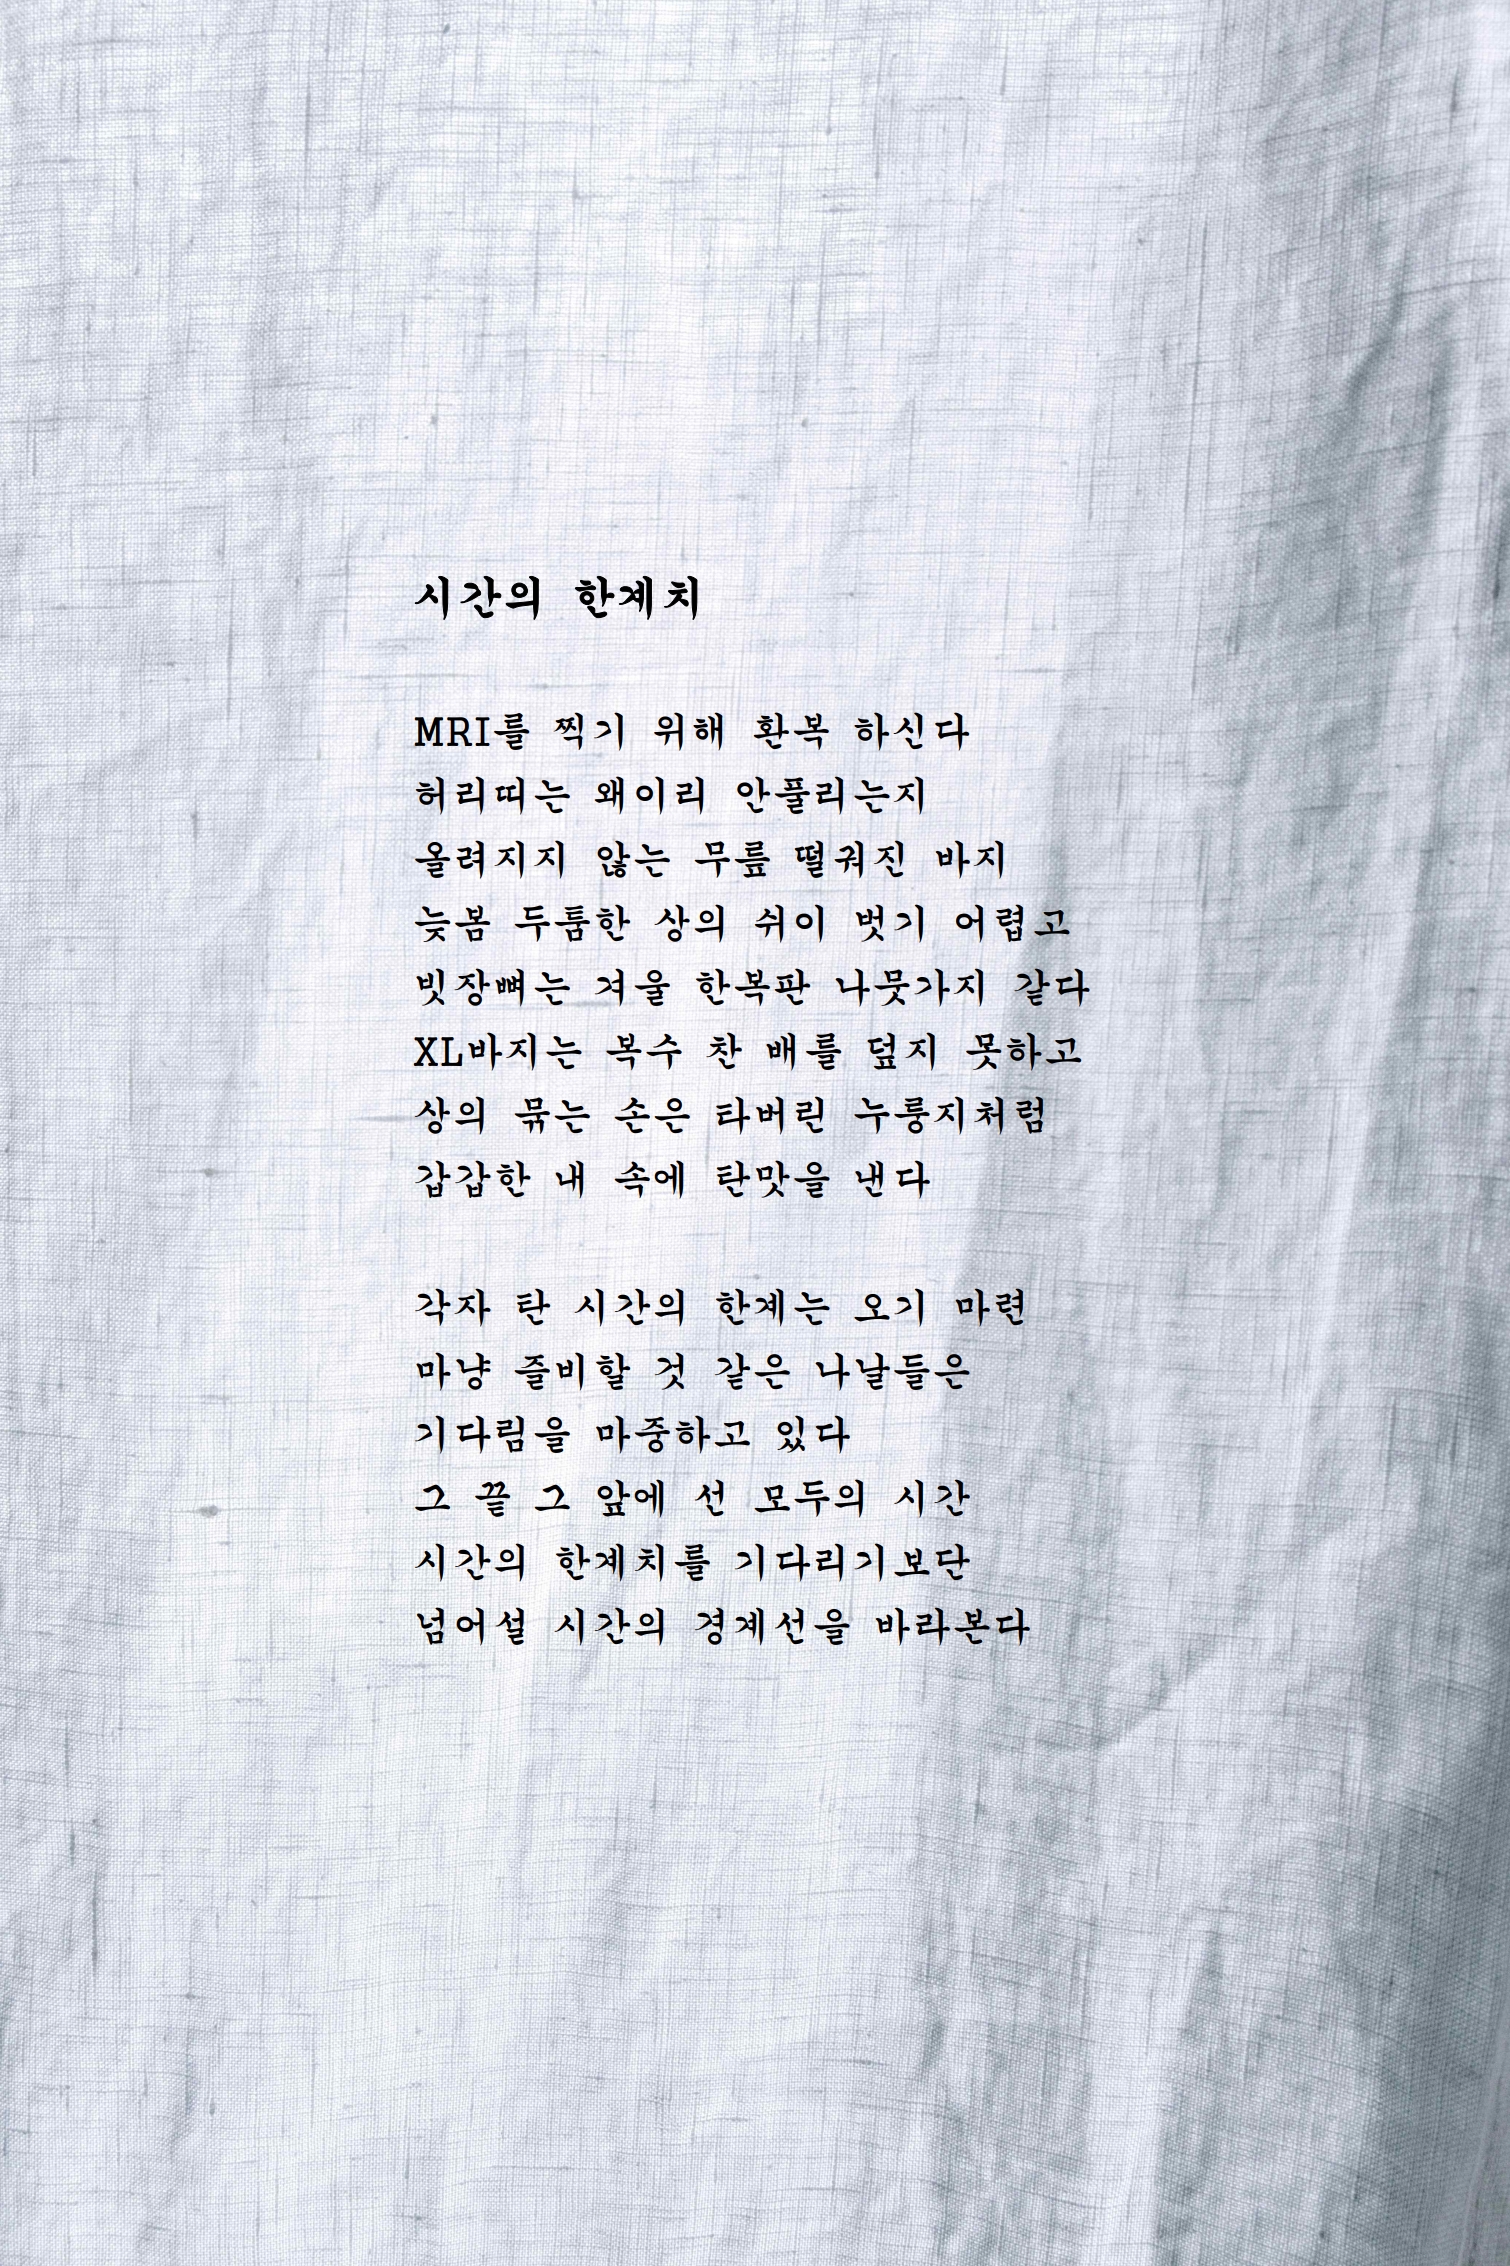 시간의 한계치
MRI를 찍기 위해 환복 하신다
허리띠는 왜이리 안풀리는지
올려지지 않는 무릎 떨궈진 바지
늦봄 두툼한 상의 쉬이 벗기 어렵고
빗장뼈는 겨울 한복판 나뭇가지 같다
XL바지는 복수 찬 배를 덮지 못하고
상의 묶는 손은 타버린 누룽지처럼
갑갑한 내 속에 탄맛을 낸다
각자 탄 시간의 한계는 오기 마련
마냥 즐비할 것 같은 나날들은
기다림을 마중하고 있다
그 끝 그 앞에 선 모두의 시간
시간의 한계치를 기다리기보단
넘어설 시간의 경계선을 바라본다